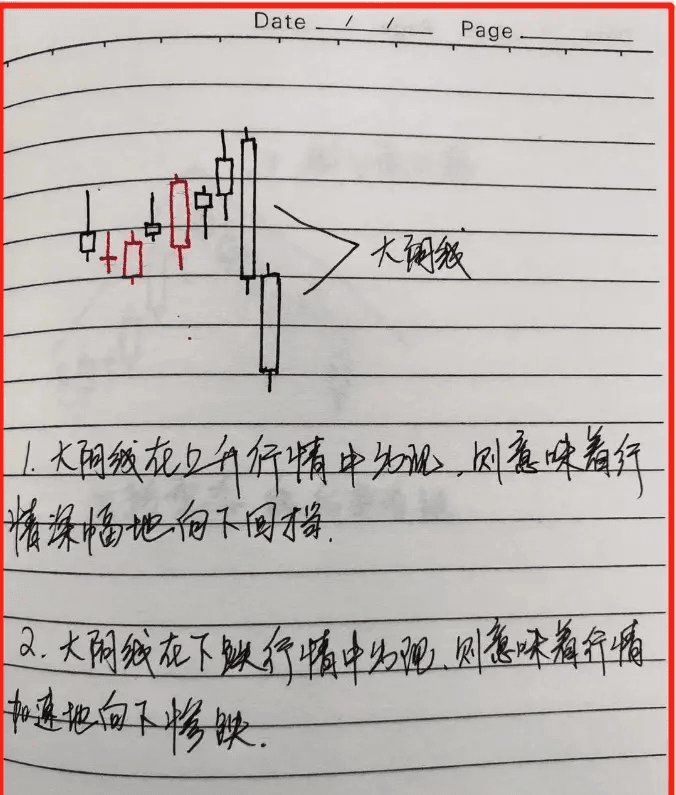 Date / / Page
大阴线
1. 大阴线在上升行情中出现，则意味着行
情深幅地向下回档.
2. 大阴线在下跌行情中出现，则意味着行情
加速地向下惨跌.